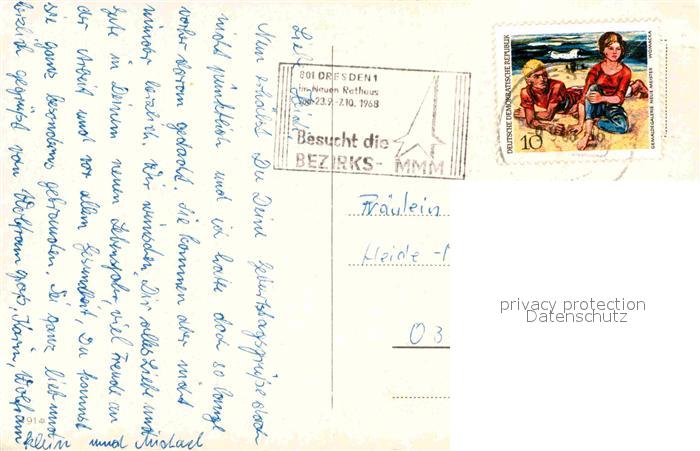 Liebe Heidi!
Nun erhältst Du Deine Geburtstagsgrüße doch
nicht pünktlich und ich hatte doch so lange
vorher daran gedacht. Sie kommen aber nicht
minder herzlich. Wir wünschen Dir alles Liebe und
Gute in Deinem neuen Lebensjahr, viel Freude an
der Arbeit und vor allem Gesundheit, Du kannst
sie ganz besonders gebrauchen. Sei ganz lieb und
herzlich gegrüßt von Wolfram groß, Karin, Wolfram
klein und Michael
801 DRESDEN 1
Im Neuen Rathaus
23.9.-7.10. 1968
Besucht die
BEZIRKS- MMM
DEUTSCHE DEMOKRATISCHE REPUBLIK
10
GEMÄLDEGALERIE NEUE MEISTER WOMACKA
Fräulein
Heide-
03
privacy protection
Datenschutz